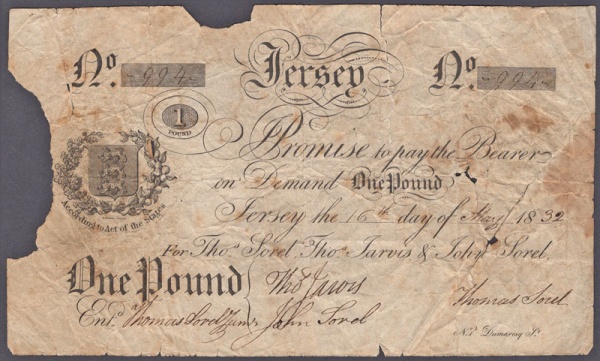 No. 994 Jersey No. 994
1
POUND
Promise to pay the Bearer
on Demand One Pound
According to Act of the States
Jersey the 16th day of May 1832
For Thos. Sorel Thos. Jarvis & John Sorel.
One Pound Thos Jarvis
Thomas Sorel
Entd. Thomas Sorel Junr John Sorel